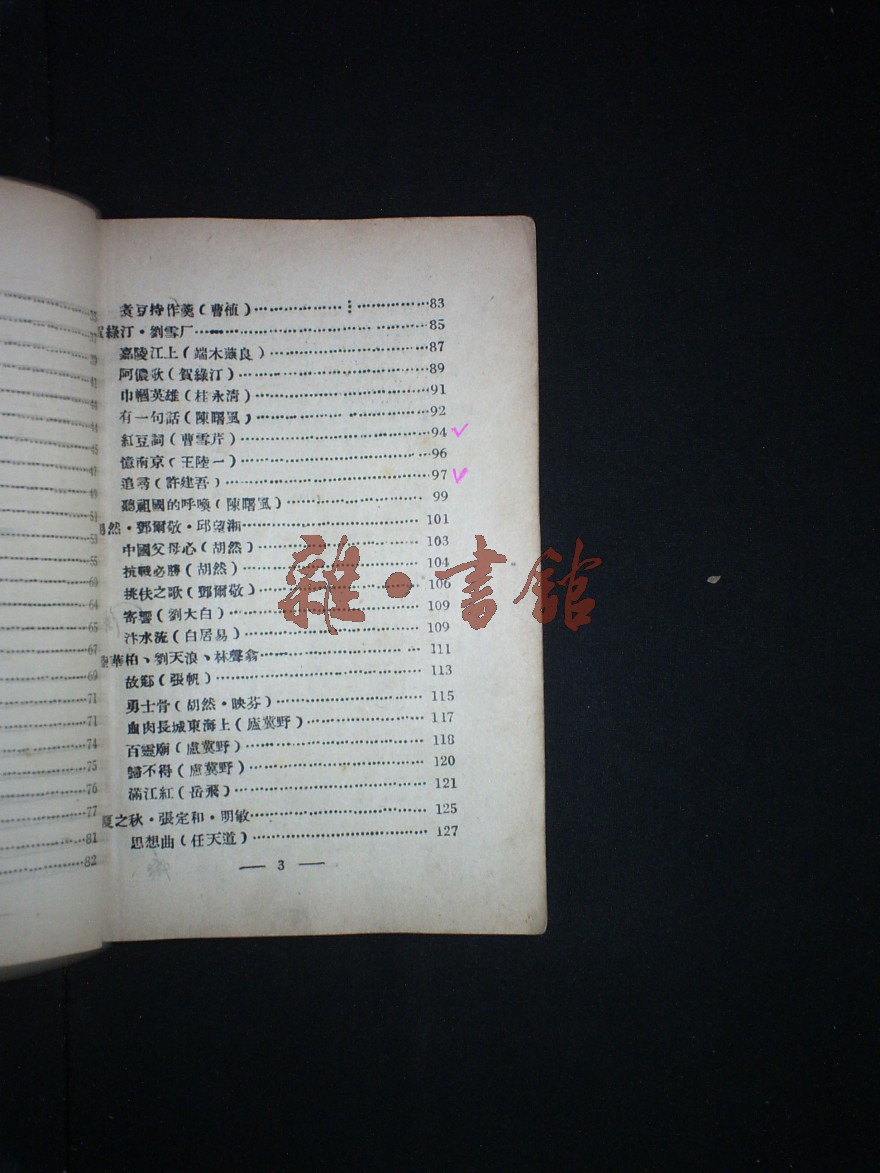 25
27
29
39
41
44
44
46
47
49
51
53
55
60
64
65
67
69
71
71
74
75
76
77
81
82
煑豆持作羹(曹植)…………………………83
綠汀·劉雪厂…………………………85
嘉陵江上(端木蕻良)…………………………87
阿儂歌(賀綠汀)…………………………89
巾幗英雄(桂永淸)…………………………91
有一句話(陳曙風)…………………………92
紅豆詞(曹雪芹)…………………………94
憶南京(王陸一)…………………………96
追尋(許建吾)…………………………97
聽祖國的呼喚(陳曙風)…………………………99
然·鄧爾敬·邱望湘…………………………101
中國父母心(胡然)…………………………103
抗戰必勝(胡然)…………………………104
挑伕之歌(鄧爾敬)…………………………106
寄響(劉大白)…………………………109
汴水流(白居易)…………………………109
華柏、劉天浪、林聲翕…………………………111
故鄕(張帆)…………………………113
勇士骨(胡然·映芬)…………………………115
血肉長城東海上(盧冀野)…………………………117
百靈廟(盧冀野)…………………………118
歸不得(盧冀野)…………………………120
滿江紅(岳飛)…………………………121
夏之秋·張定和·明敏…………………………125
思想曲(任天道)…………………………127
— 3 —
雜·書館